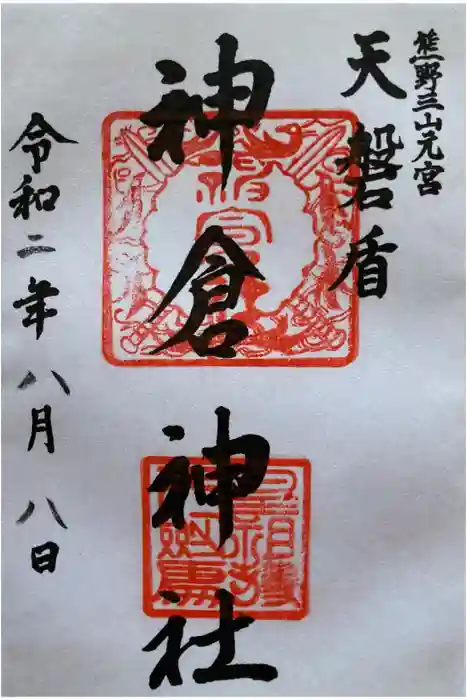 熊野三山元宮
天磐盾
神倉神社
令和二年八月八日